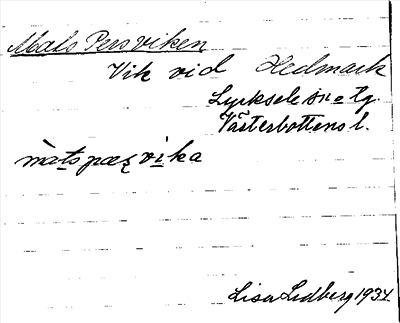 Mats Persviken
Vik vid Hedmark
Lycksele sn o tg.
Västerbottens l.
màts pæʂ vika
Lisa Lidberg 1934